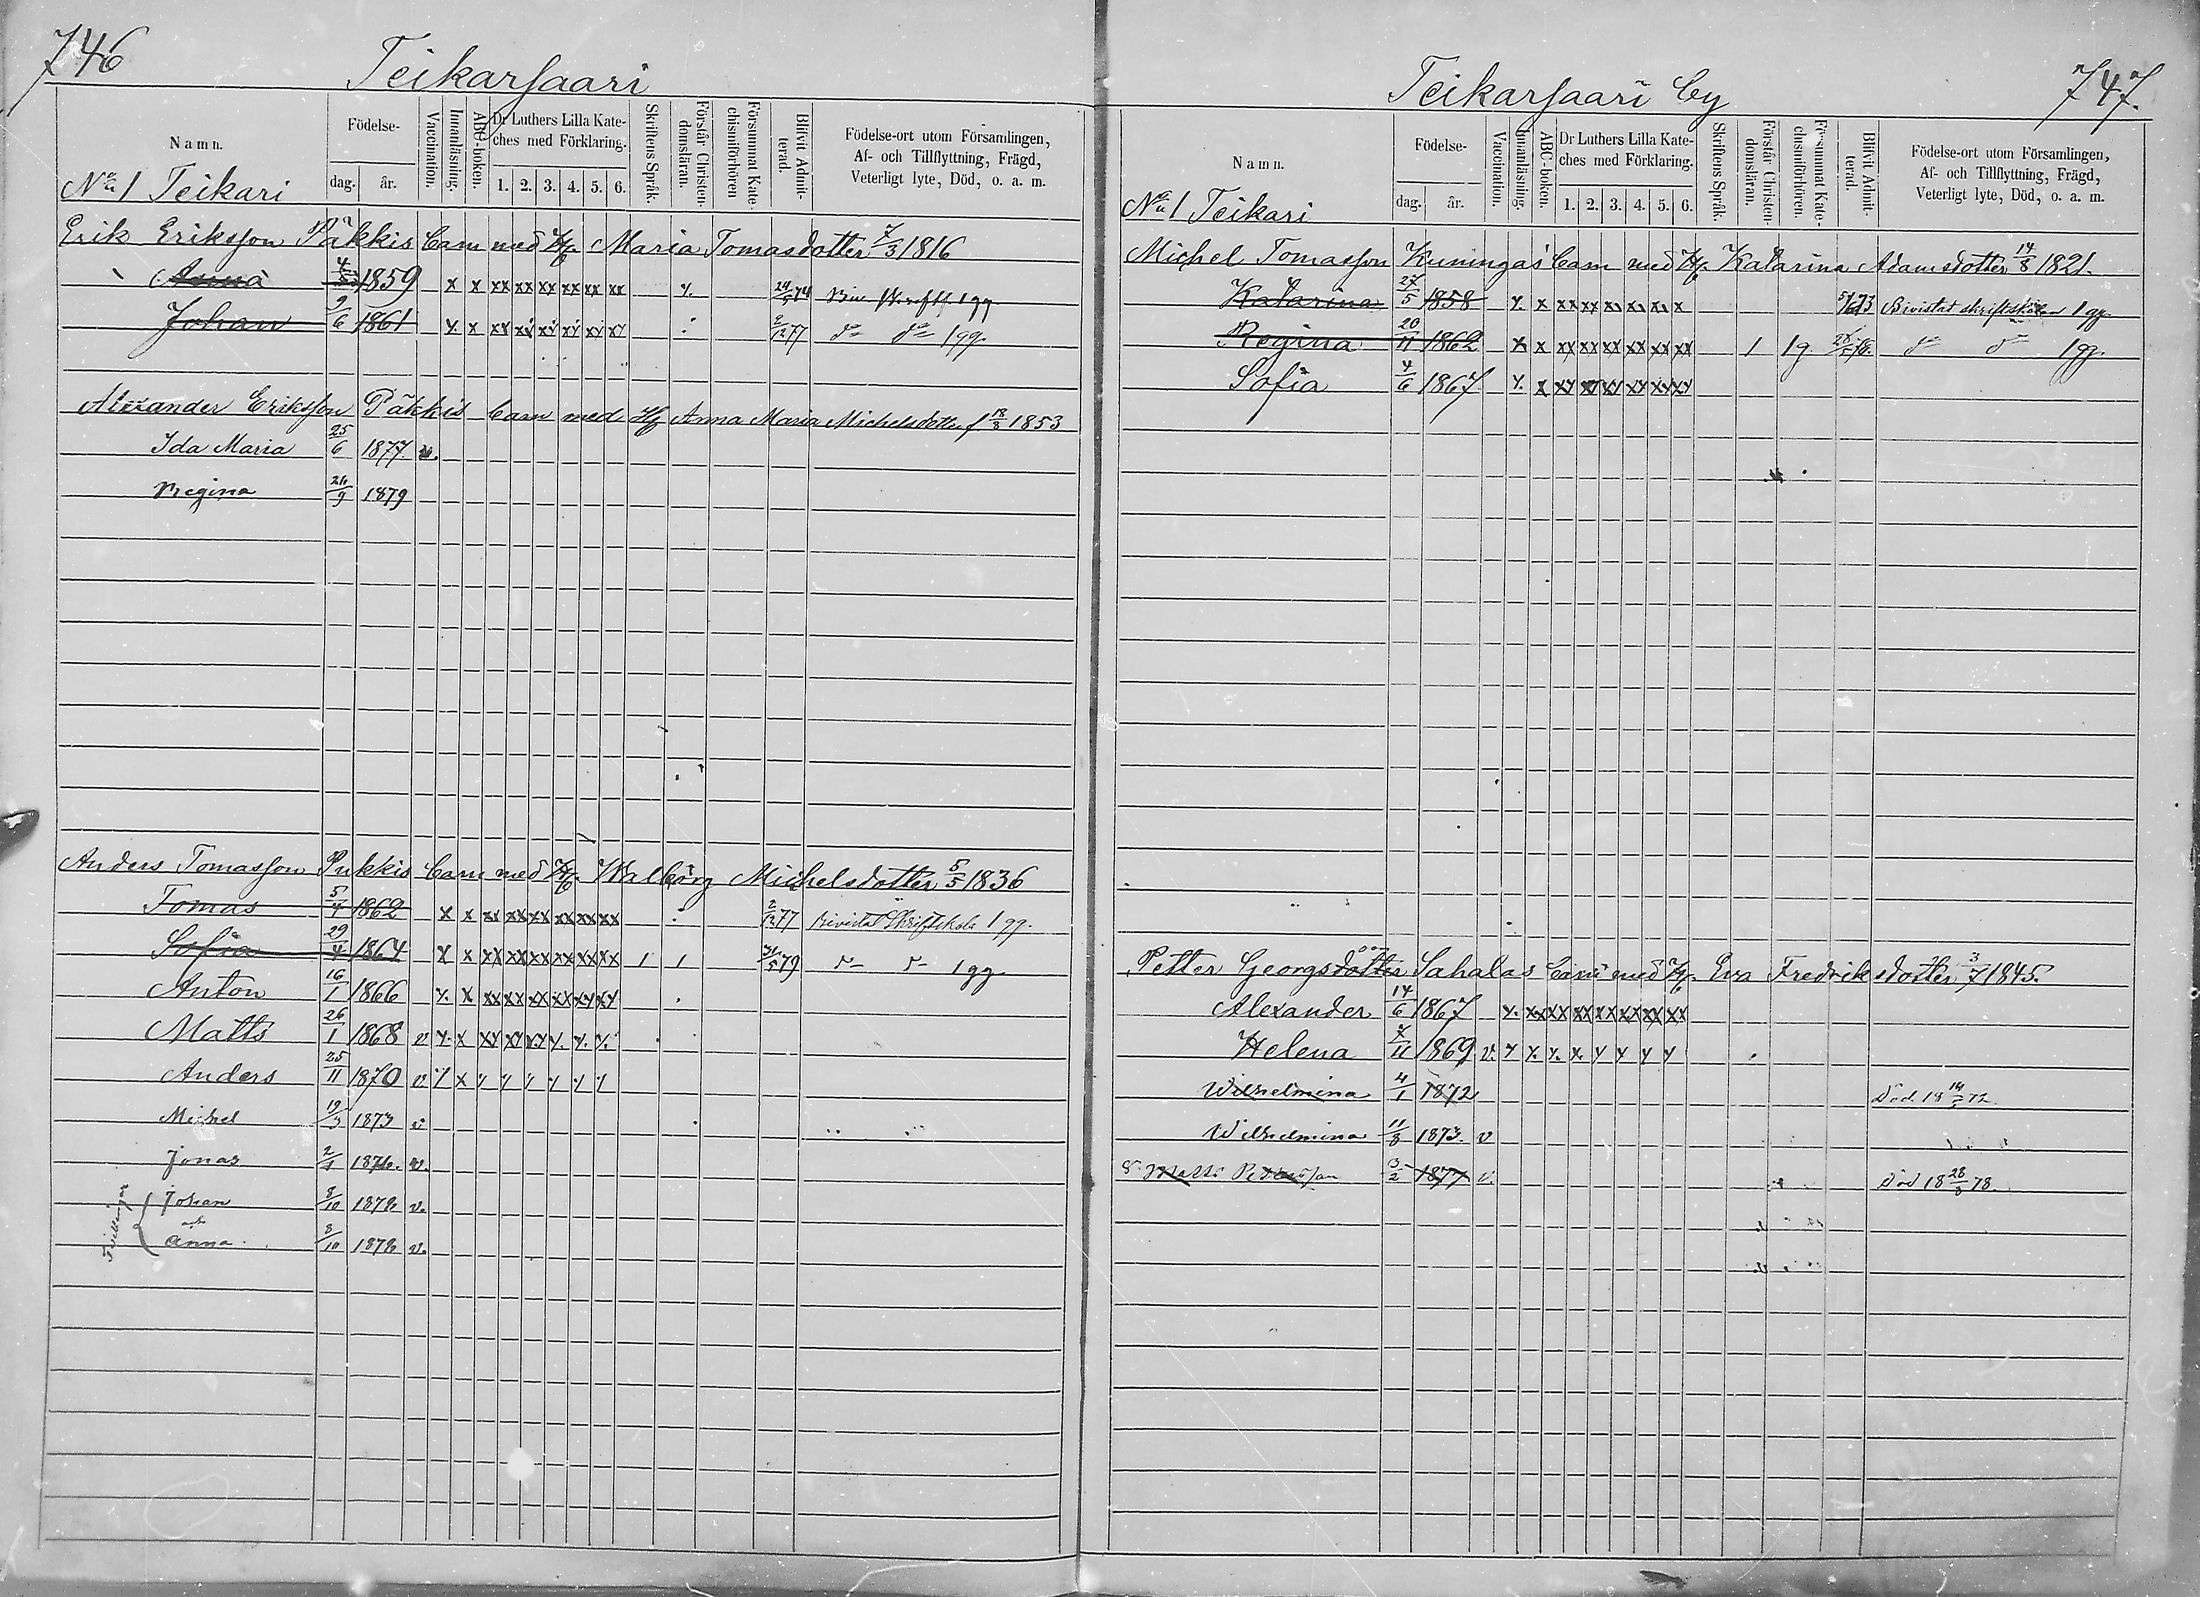 746
Teikarsaari
Namn.
Födelse-
dag.
år.
Vaccination.
Innanläsning.
ABC-boken.
Dr Luthers Lilla Kate-
ches med Förklaring.
1. 2. 3. 4. 5. 6.
Skriftens Språk.
Förstår Christen-
domsläran.
Försummat Kate-
chismiförhören
Blifvit Admit-
terad.
Födelse-ort utom Församlingen,
Af- och Tillflyttning, Frägd,
Veterligt lyte, Död, o. a. m.
No 1 Teikari
Erik Eriksson Päkkis barn med H. Maria Tomasdotter 7/3 1816
Anna 1859 x x xx xx xx xx xx xx 1 gg
Johan 9/6 1861 x x xx xx xx xx xx xx 2/12 77 do do 1 gg.
Alexander Eriksson Päkkis barn med H Anna Maria Michelsdotter f. 18/8 1853
Ida Maria 25/6 1877 v.
Regina 26/9 1879
Anders Tomasson Pukkis barn med H. Walborg Michelsdotter 5/5 1836
Tomas 5/4 1862 x x xx xx xx xx xx xx 2/12 77 Bivistat Skriftskola 1 gg.
Sofia 29/4 1864 x x xx xx xx xx xx xx 1 1 31/5 79 do do 1 gg.
Anton 16/1 1866 x x xx xx xx xx xx xx
Matts 26/1 1868 v x x xx xx xx x. x. x.
Anders 25/11 1870 v.
Michel 19/3 1873 v
Jonas 1876. v.
Tvillingar
Johan 8/10 1878 v.
och
Anna 8/10 1878 v.
Teikarsaari by
747.
Namn.
Födelse-
dag.
år.
Vaccination.
Innanläsning.
ABC-boken.
Dr Luthers Lilla Kate-
ches med Förklaring.
1. 2. 3. 4. 5. 6.
Skriftens Språk.
Förstår Christen-
domsläran.
Försummat Kate-
chismiförhören.
Blifvit Admit-
terad.
Födelse-ort utom Församlingen,
Af- och Tillflyttning, Frägd,
Veterligt lyte, Död, o. a. m.
No 1 Teikari
Michel Tomasson Kuningas barn med H. Katarina Adamsdotter 14/8 1821.
Katarina 27/5 1858 x x xx xx xx x. x. x 73 Bivistat skriftskolan 1 gg.
Regina 20/11 1862 x x xx xx xx xx xx xx 1 1 g. do do 1 gg.
Sofia 4/6 1867 x. x xx xx xx xx xx xx
Petter Georgsdotter son Sahalas barn med H. Eva Fredriksdotter 3/7 1845.
Alexander 14/6 1867 x. xx xx xx xx xx xx xx
Helena 7/11 1869 v. x x. x. x. x x x x
Wilhelmina 4/1 1872 Död 18 14/ 72
Wilhelmina 11/8 1873. v
Matts Petersson 3/2 1877 v. Död 18 28/8 78.